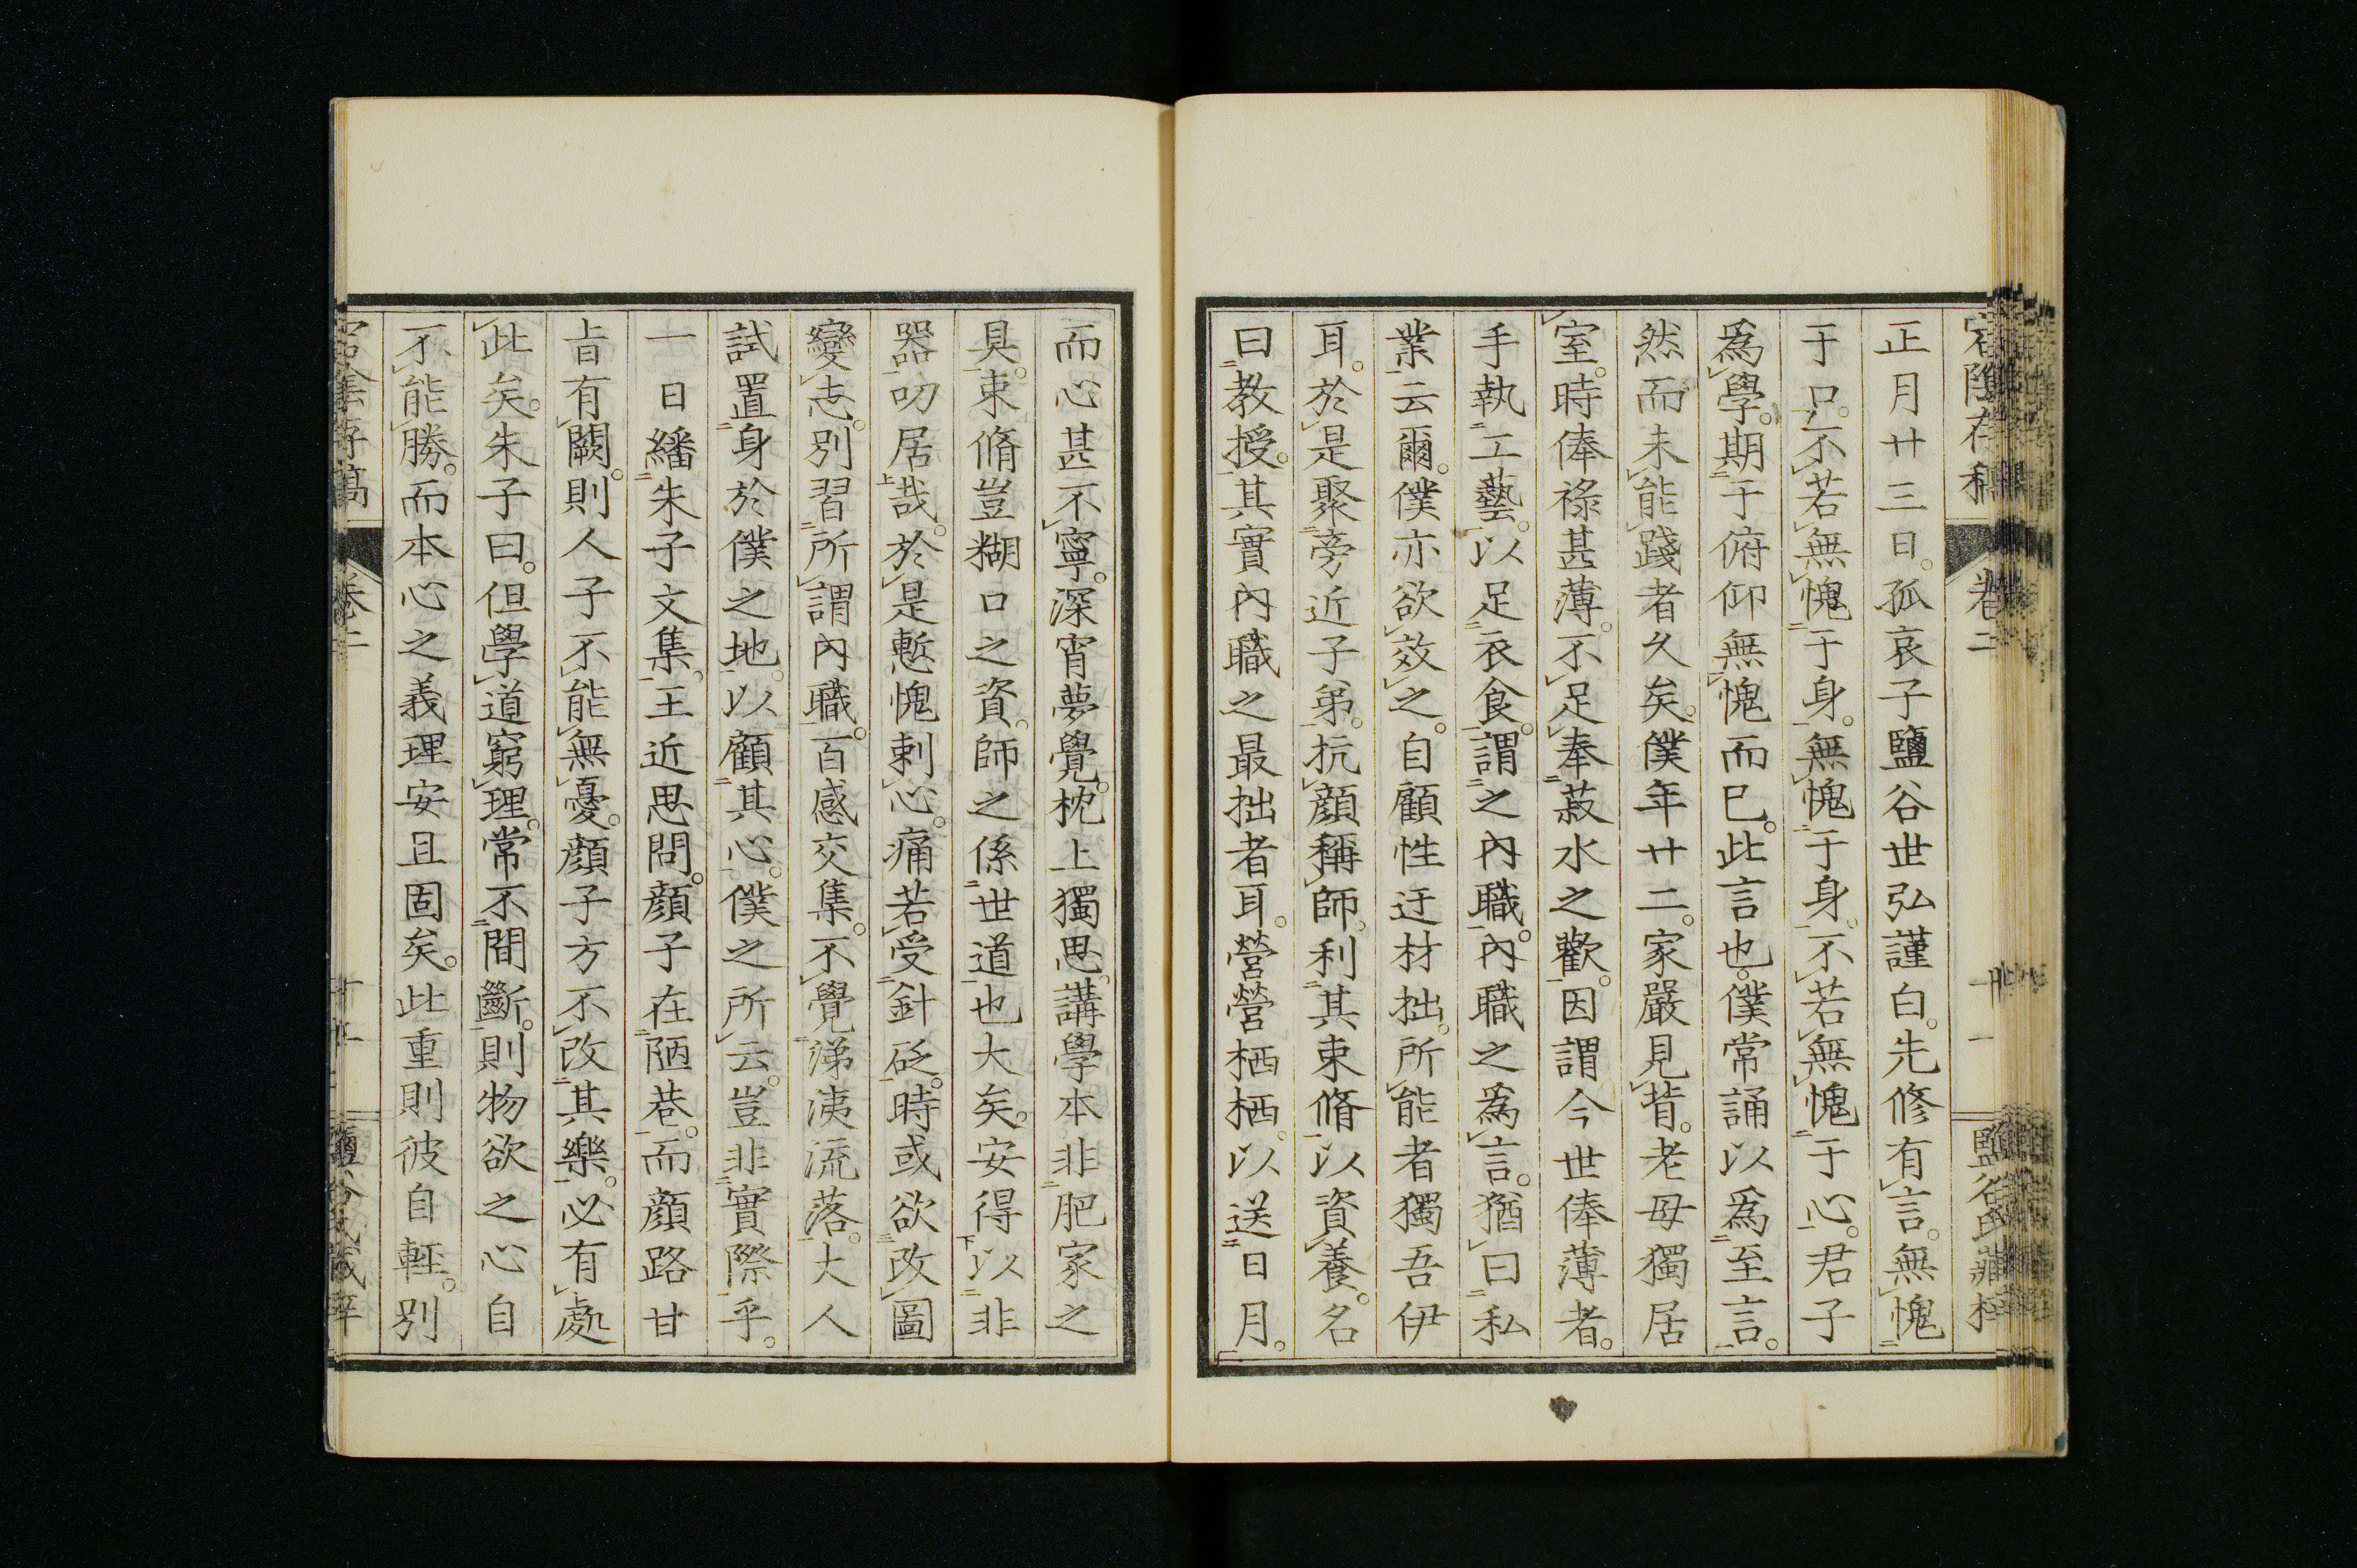 正月廿三日。孤哀子鹽谷世弘謹白。先修有言。無愧
于口。不若無愧于身。無愧于身。不若無愧于心。君子
爲學。期于俯仰無愧而已。此言也。僕常誦以爲至言。
然而未能踐者久矣。僕年廿二。家嚴見背。老母獨居
室。時俸祿甚薄。不足奉菽水之歡。因謂今世俸薄者。
手執工藝。以足衣食。謂之內職。內職之爲言。猶曰私
業云爾。僕亦欲效之。自顧性迂材拙。所能者獨吾伊
耳。於是聚旁近子弟。抗顏稱師。利其束脩。以資養。名
曰教授。其實內職之最拙者耳。營營栖栖。以送日月。
而心甚不寧。深宵夢覺。枕上獨思。講學本非肥家之
具。束脩豈糊口之資。師之係世道也大矣。安得以非
器叨居哉。於是慙愧刺心。痛若受針砭。時或欲改圖
變志。別習所謂內職。百感交集。不覺涕洟流落。大人
試置身於僕之地。以顧其心。僕之所云。豈非實際乎。
一日繙朱子文集。王近思問。顏子在陋巷。而顏路甘
旨有闕。則人子不能無憂。顏子方不改其樂。必有處
此矣。朱子曰。但學道窮理。常不間斷。則物欲之心自
不能勝。而本心之義理安且固矣。此重則彼自輕。別
卷二